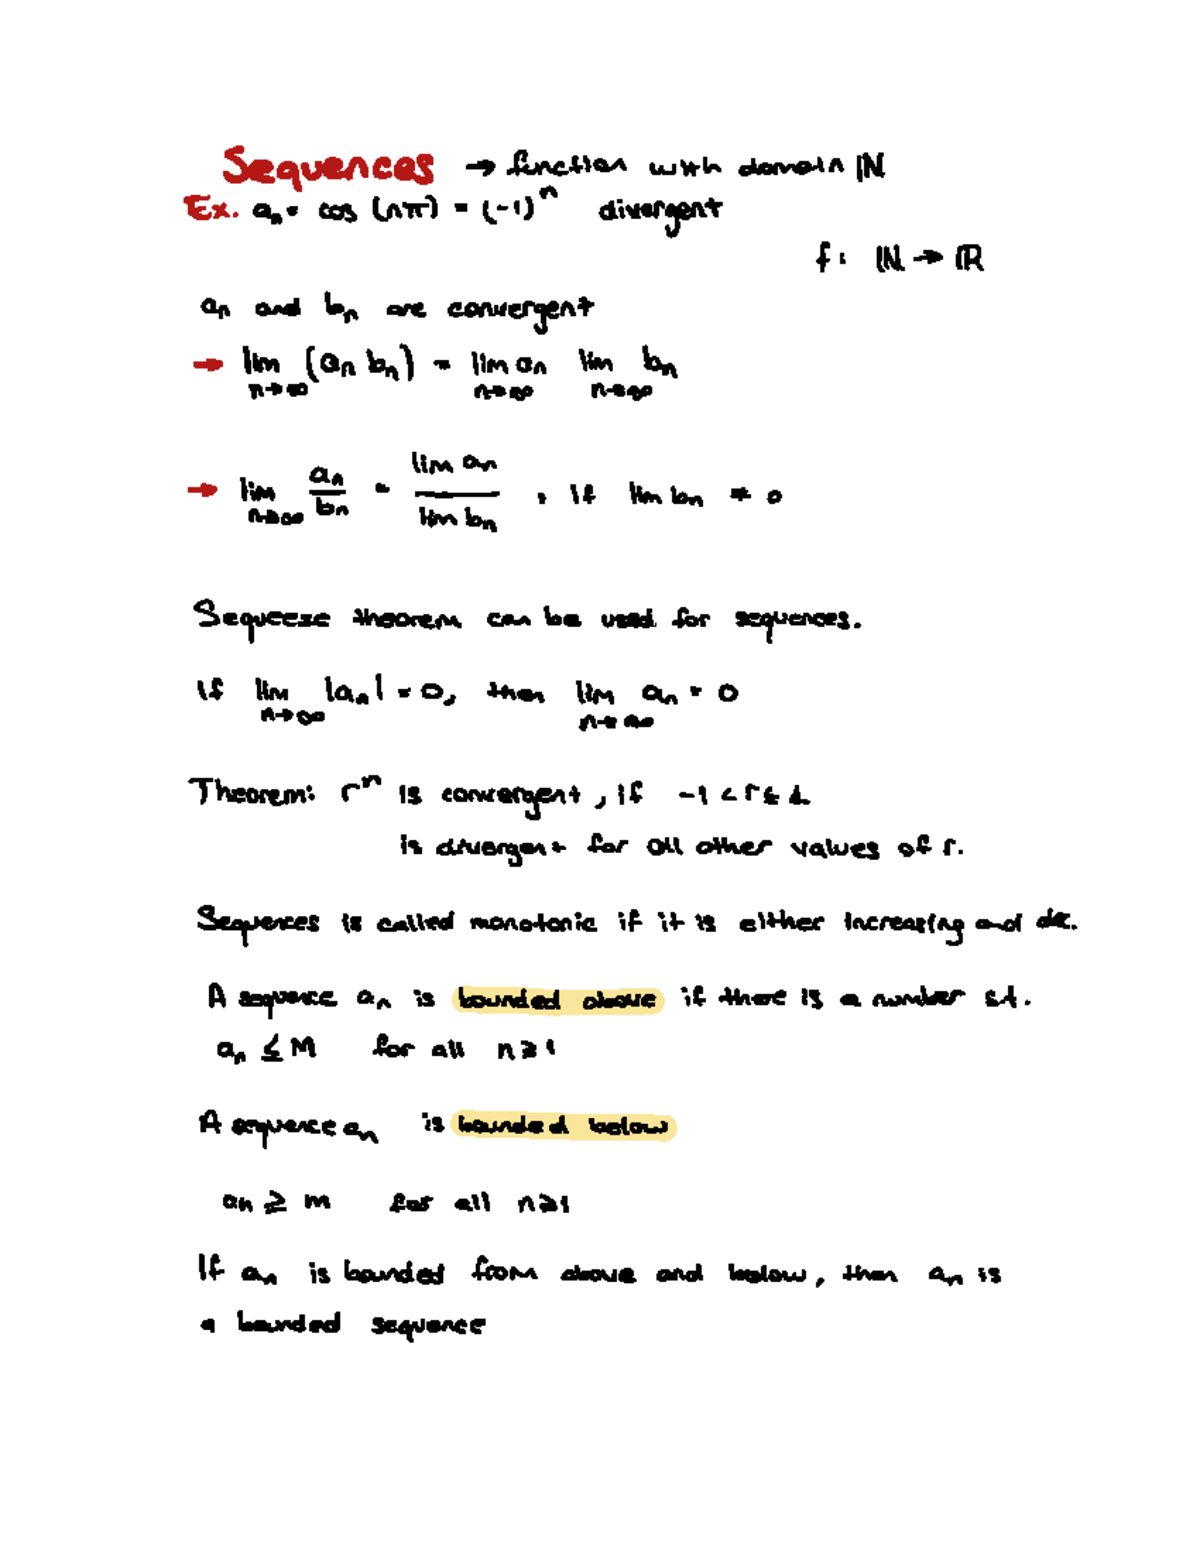 Sequences → function with domain ℕ
Ex. aₙ = cos (nπ) = (-1)ⁿ divergent
f: ℕ → ℝ
aₙ and bₙ are convergent
→ lim n→∞ (aₙ bₙ) = lim n→∞ aₙ lim n→∞ bₙ
→ lim n→∞ aₙ/bₙ = lim aₙ / lim bₙ , if lim bₙ ≠ 0
Sequeeze theorem can be used for sequences.
If lim n→∞ |aₙ| = 0, then lim n→∞ aₙ = 0
Theorem: rⁿ is convergent, if -1 < r ≤ 1
is divergent for all other values of r.
Sequences is called monotonic if it is either increasing and dec.
A sequence aₙ is bounded above if there is a number s.t.
aₙ ≤ M for all n ≥ 1
A sequence aₙ is bounded below
aₙ ≥ m for all n ≥ 1
If aₙ is bounded from above and below, then aₙ is
a bounded sequence